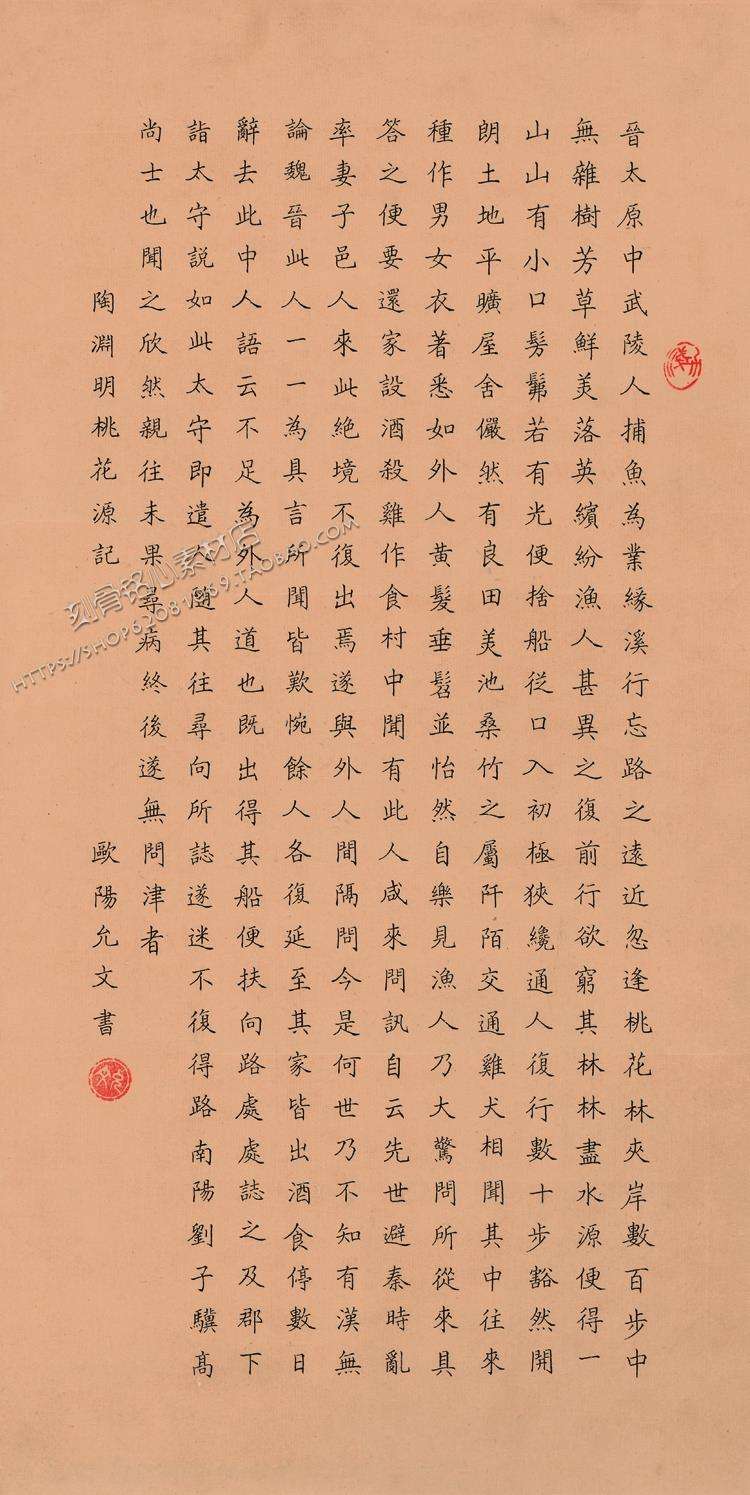 晉太原中武陵人捕魚為業緣溪行忘路之遠近忽逢桃花林夾岸數百步中
無雜樹芳草鮮美落英繽紛漁人甚異之復前行欲窮其林林盡水源便得一
山山有小口髣髴若有光便捨船從口入初極狹纔通人復行數十步豁然開
朗土地平曠屋舍儼然有良田美池桑竹之屬阡陌交通雞犬相聞其中往來
種作男女衣著悉如外人黃髮垂髫並怡然自樂見漁人乃大驚問所從來具
答之便要還家設酒殺雞作食村中聞有此人咸來問訊自云先世避秦時亂
率妻子邑人來此絕境不復出焉遂與外人間隔問今是何世乃不知有漢無
論魏晉此人一一為具言所聞皆歎惋餘人各復延至其家皆出酒食停數日
辭去此中人語云不足為外人道也既出得其船便扶向路處處誌之及郡下
詣太守説如此太守即遣人隨其往尋向所誌遂迷不復得路南陽劉子驥高
尚士也聞之欣然親往未果尋病終後遂無問津者
陶淵明桃花源記 歐陽允文書
刻骨铭心素材店